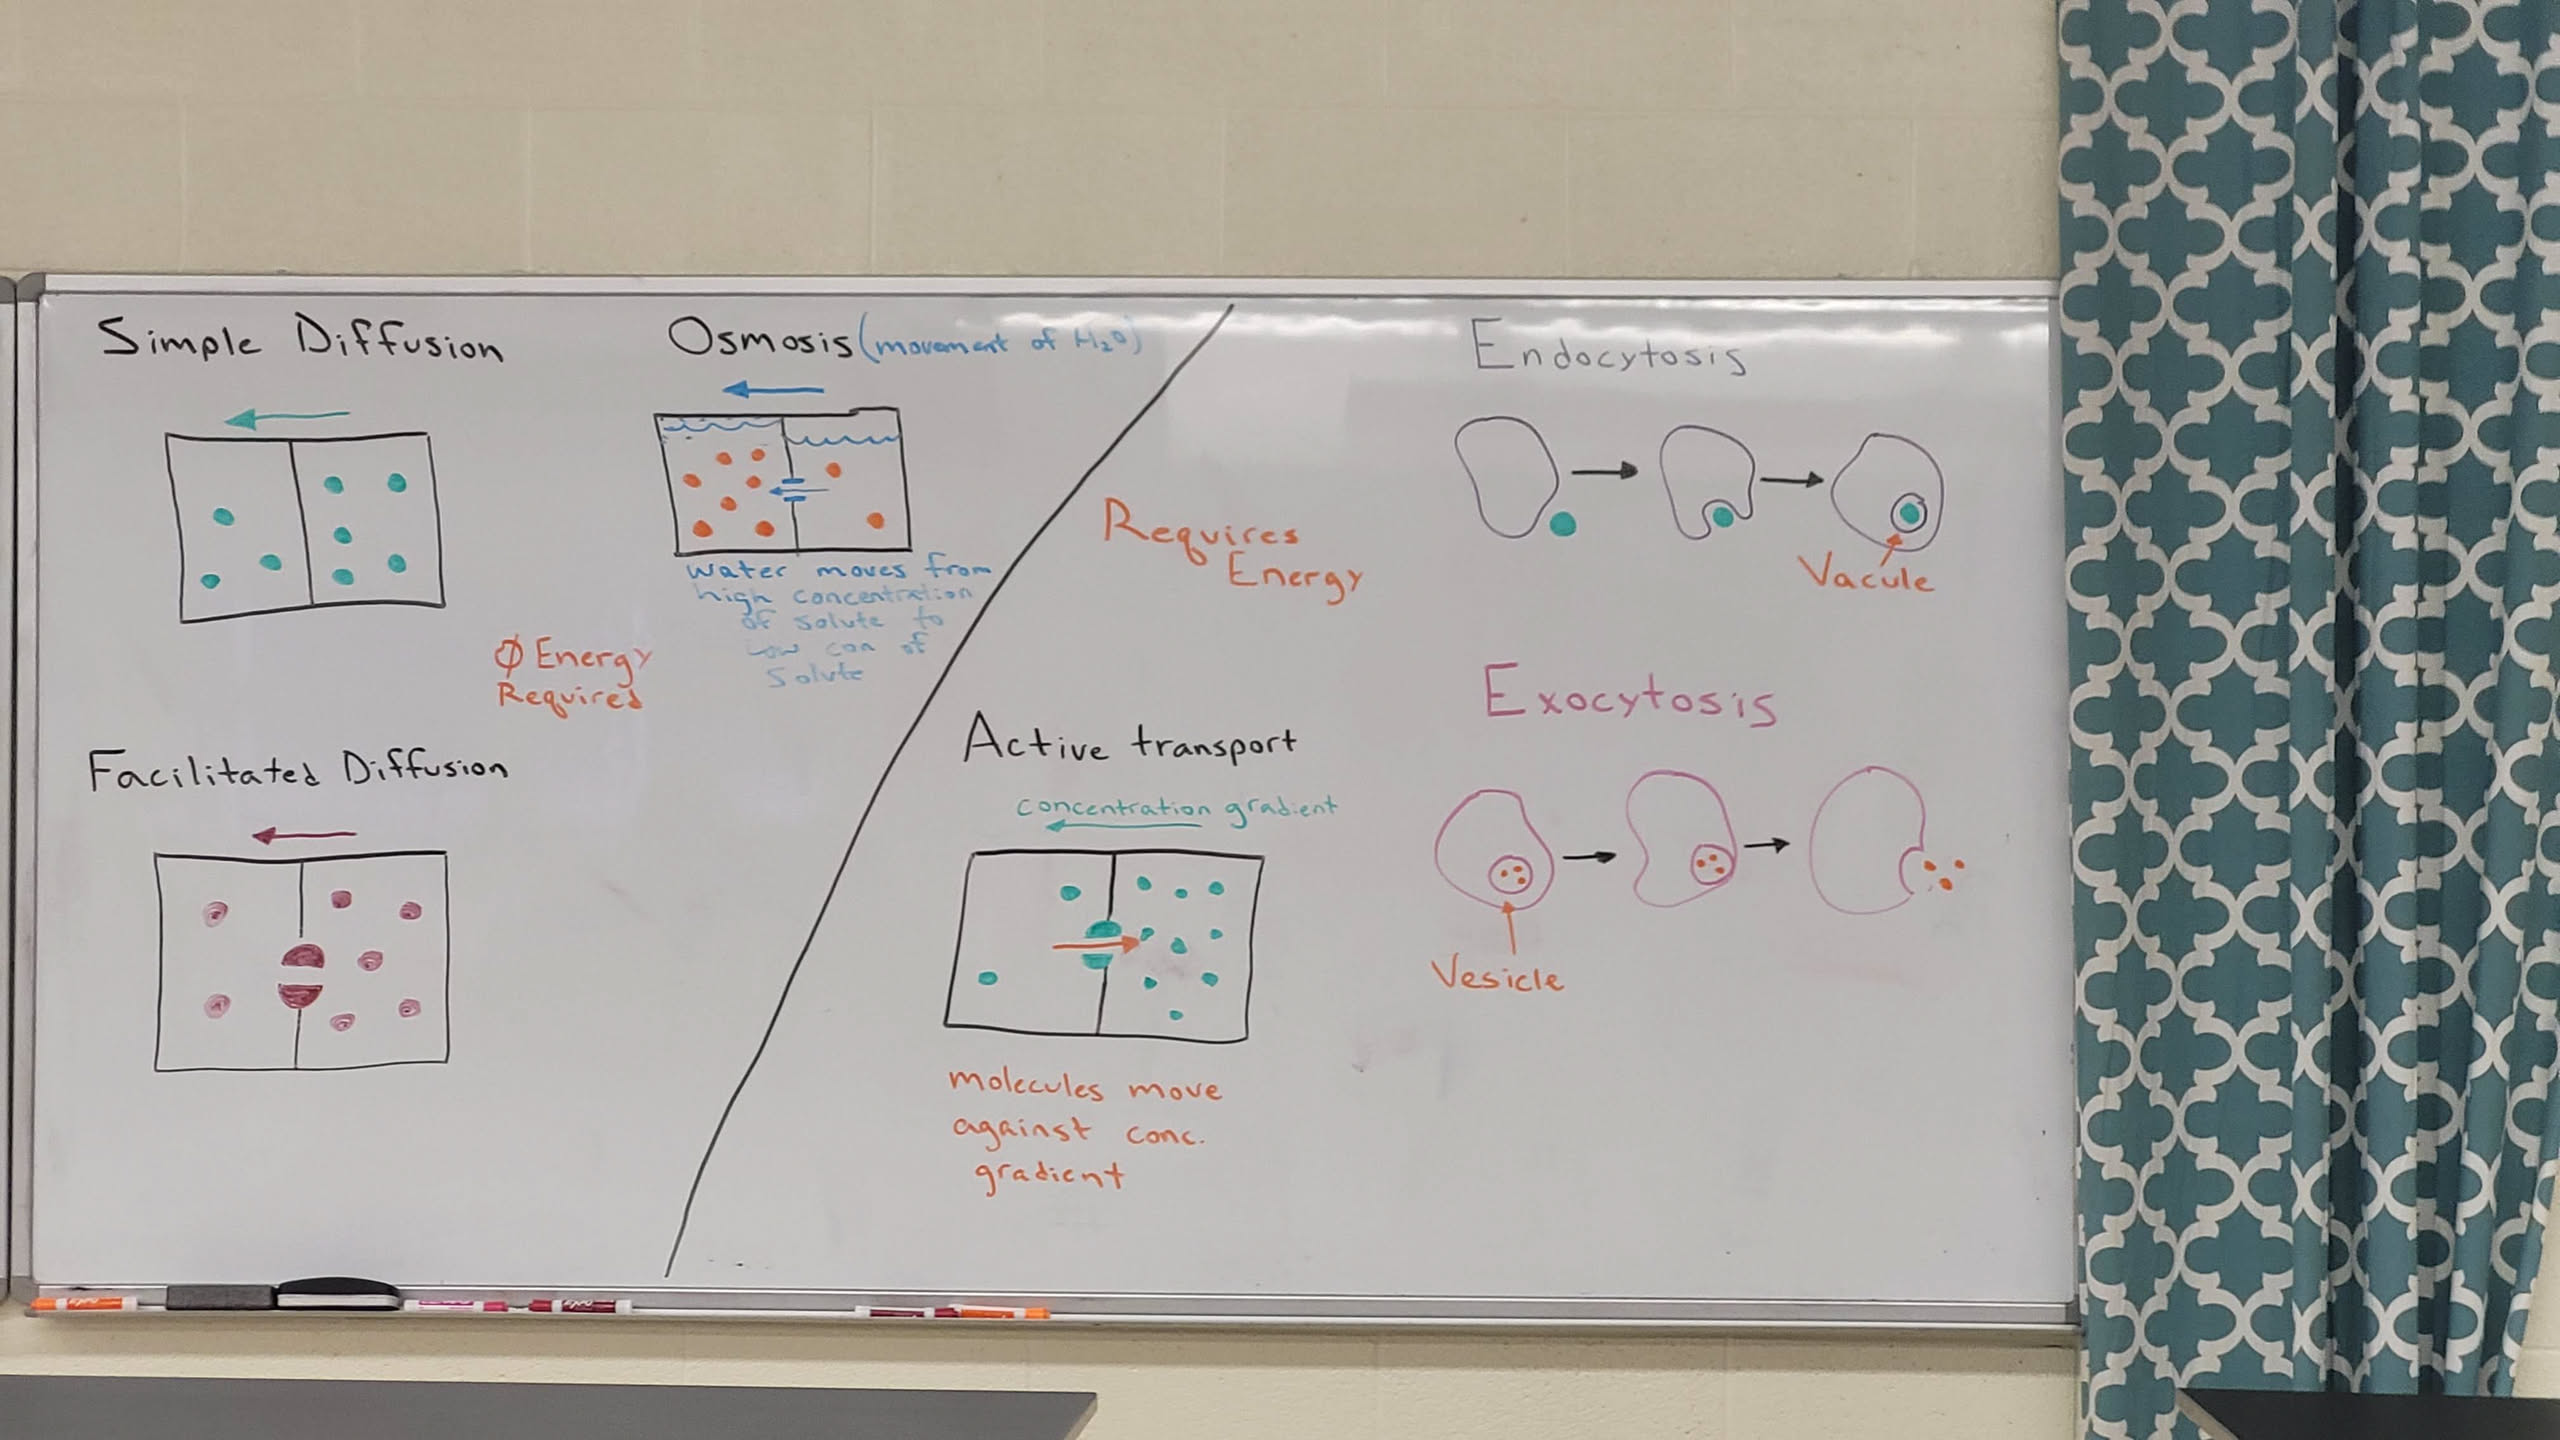 Simple Diffusion
Osmosis (movement of H₂O)
water moves from
high concentration
of solute to
low con of
solute
Ø Energy
Required
Facilitated Diffusion
Requires
Energy
Active transport
concentration gradient
molecules move
against conc.
gradient
Endocytosis
Vacule
Exocytosis
Vesicle